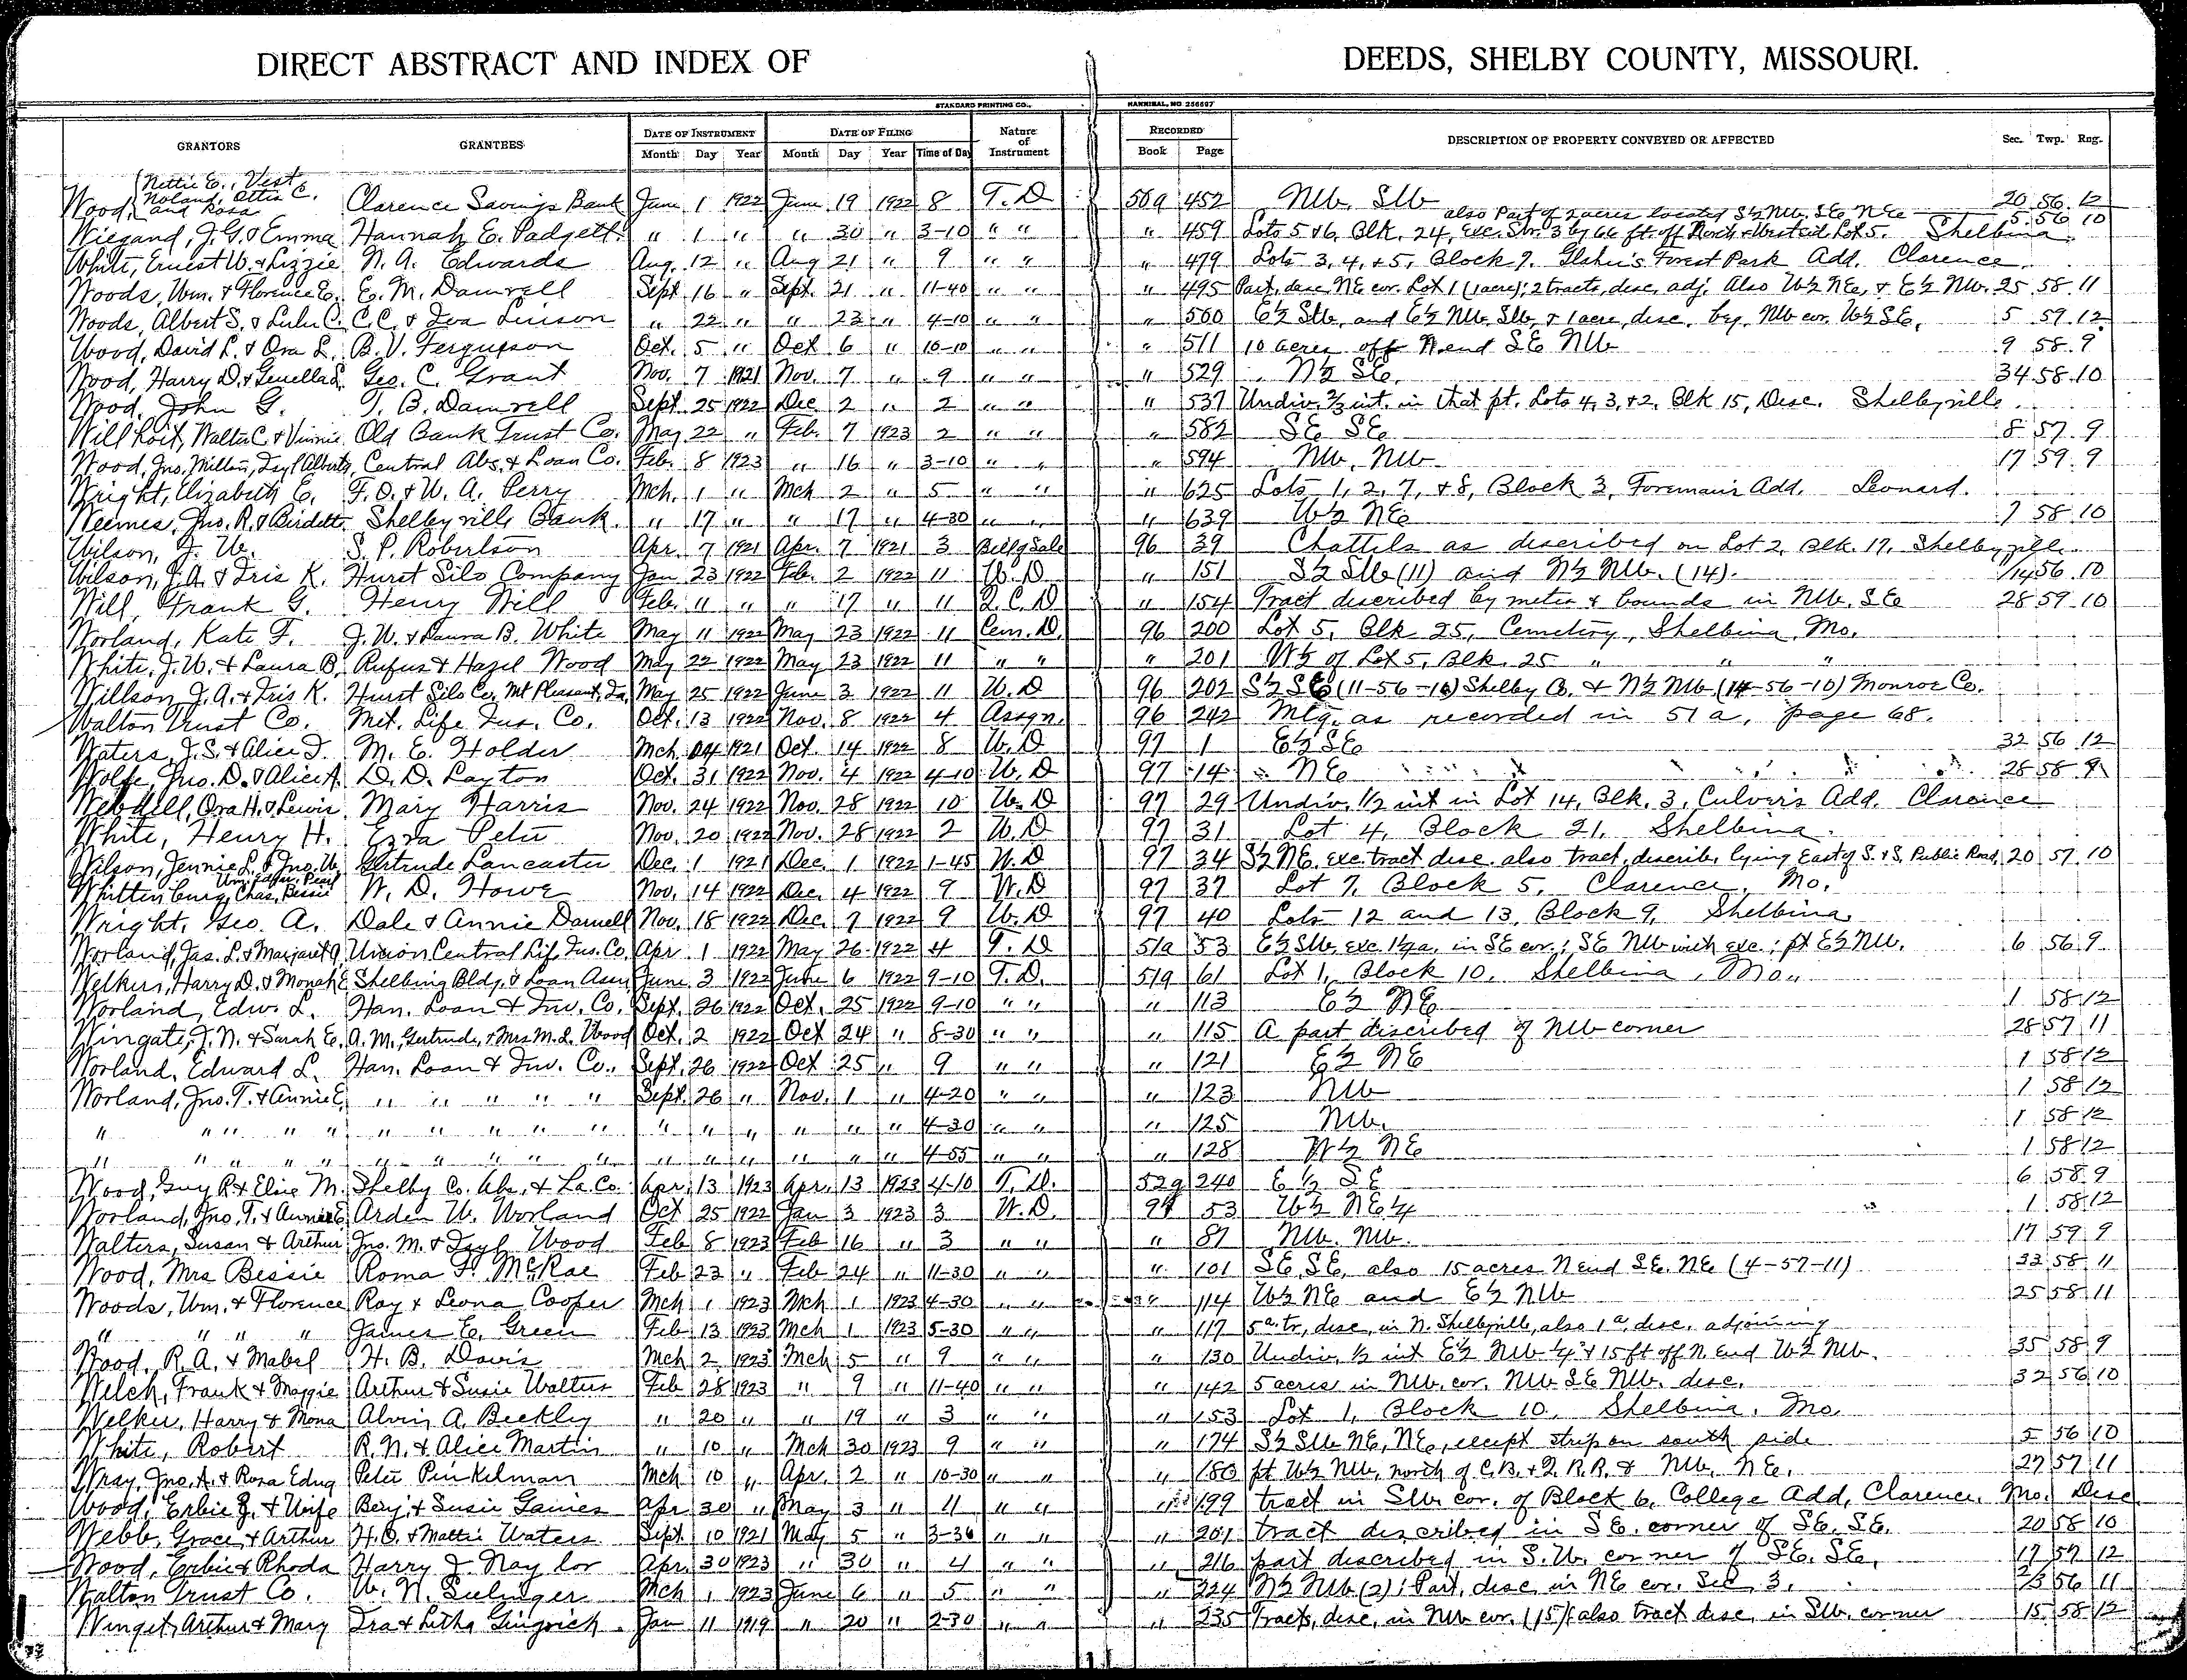 DIRECT ABSTRACT AND INDEX OF DEEDS, SHELBY COUNTY, MISSOURI.
STANDARD PRINTING CO., HANNIBAL, MO 256687
GRANTORS GRANTEES DATE OF INSTRUMENT DATE OF FILING Nature of Instrument RECORDED DESCRIPTION OF PROPERTY CONVEYED OR AFFECTED Sec. Twp. Rng.
Month Day Year Month Day Year Time of Day Book Page
Wood, Nettie E., Vest Noland, Ottis C. and Rosa Clarence Savings Bank June 1 1922 June 19 1922 8 T. D 50a 452 NW. SW 20 56 12
also Part of 2 acres located S½ NW. SE NE 5 56 10
Wiegand, J. G. & Emma Hannah E. Padgett. " 1 " " 30 " 3-10 " " " 459 Lots 5 & 6, Blk. 24, exc. Str. 3 by 66 ft. off North & West end Lot 5. Shelbina.
White, Ernest W. & Lizzie N. A. Edwards Aug. 12 " Aug 21 " 9 " " " 479 Lots 3, 4, & 5, Block 7. Forest Park Add. Clarence.
Woods, Wm. & Florence E. E. M. Damrell Sept 16 " Sept. 21 " 11-40 " " " 495 Part, desc NE cor. Lot 1 (1 acre); 2 tracts, desc, adj. Also W½ NE, & E½ NW. 25 58 11
Woods, Albert S. & Lulu C. C. C. & Iva Linson " 22 " " 23 " 4-10 " " " 500 E½ SW, and E½ NW. SW, & 1 acre, desc. beg. NW cor. W½ SE, 5 59 12
Wood, David L. & Ora L. B. V. Ferguson Oct. 5 " Oct 6 " 10-10 " " " 511 10 acres off N. end SE NW 9 58 9
Wood, Harry D. & Genella S. Geo. C. Grant Nov. 7 1921 Nov. 7 " 9 " " " 529 N½ SE. 34 58 10
Wood, John G. T. B. Damrell Sept 25 1922 Dec 2 " 2 " " " 537 Undiv. ⅔ int. in that pt. Lots 4, 3, & 2, Blk 15, Desc. Shelbyville
Willhoit, Walter C. & Vinnie Old Bank Trust Co. May 22 " Feb. 7 1923 2 " " " 582 SE SE 8 57 9
Wood, Jno. Milton, Alberta, Central Abs. & Loan Co. Feb. 8 1923 " 16 " 3-10 " " " 594 NW. NW 17 59 9
Wright, Elizabeth E. F. O. & W. A. Perry Mch. 1 " Mch 2 " 5 " " " 625 Lots 1, 2, 7, & 8, Block 3, Foreman's Add. Leonard.
Weemes, Jno. R. & Birdette Shelbyville Bank. " 17 " " 17 " 4-30 " " " 639 W½ NE 7 58 10
Wilson, J. W. S. P. Robertson Apr. 7 1921 Apr. 7 1921 3 Bill of Sale 96 39 Chattels as described on Lot 2, Blk. 17, Shelbyville.
Wilson, J. A. & Iris K. Hurst Silo Company Jan 23 1922 Feb. 2 1922 11 W. D " 151 S½ SW (11) and N½ NW. (14). 11/14 56 10
Will, Frank G. Henry Will Feb. 11 " " 17 " 11 Q. C. D " 154 Tract discribed by metes & bounds in NW. SE 28 59 10
Worland, Kate F. J. W. & Laura B. White May 11 1922 May 23 1922 11 Cem. D. 96 200 Lot 5, Blk 25, Cemetery, Shelbina, Mo.
White, J. W. & Laura B. Rufus & Hazel Wood May 22 1922 May 23 1922 11 " " " 201 W½ of Lot 5, Blk. 25 " " "
Willson, J. A. & Iris K. Hurst Silo Co. Mt Pleasant, Ia. May 25 1922 June 3 1922 11 W. D 96 202 S½ SE (11-56-10) Shelby Co. & N½ NW (14-56-10) Monroe Co.
Walton Trust Co. Met. Life Ins. Co. Oct. 13 1922 Nov. 8 1922 4 Assgn. 96 242 Mtg. as recorded in 51a, page 68.
Waters, J. S. & Alice J. M. E. Holder Mch. 24 1921 Oct. 14 1922 8 W. D 97 1 E½ SE 32 56 12
Wolfe, Jno. D. & Alice A. D. D. Layton Oct. 31 1922 Nov. 4 1922 4-10 W. D 97 14 NE 28 58 9
Webdell, Ora H. & Lewis Mary Harris Nov. 24 1922 Nov. 28 1922 10 W. D 97 29 Undiv. 1/2 int in Lot 14, Blk. 3, Culver's Add. Clarence
White, Henry H. Ezra Peter Nov. 20 1922 Nov. 28 1922 2 W. D 97 31 Lot 4, Block 21, Shelbina.
Wilson, Jennie L. & Jno. W. Gertrude Lancaster Dec. 1 1921 Dec. 1 1922 1-45 W. D 97 34 S½ NE. exc. tract desc. also tract, describ. lying East of S. & S. Public Road. 20 57 10
Whittenburg, Wm. Edgar, Pearl Chas, Bessie W. D. Howe Nov. 14 1922 Dec. 4 1922 9 W. D 97 37 Lot 7, Block 5, Clarence, Mo.
Wright, Geo. A. Dale & Annie Darnell Nov. 18 1922 Dec. 7 1922 9 W. D 97 40 Lots 12 and 13, Block 9, Shelbina
Worland, Jas. L. & Margaret A. Union Central Life Ins. Co. Apr 1 1922 May 26 1922 4 T. D 51a 53 E½ SW, exc. 1½ a, in SE cor.; SE NW with exc.; pt E½ NW. 6 56 9
Welkus, Harry D. & Monah E Shelbina Bldg. & Loan Assn June 3 1922 June 6 1922 9-10 T. D. 51a 61 Lot 1, Block 10, Shelbina, Mo.,
Worland, Edw. L. Han. Loan & Inv. Co. Sept. 26 1922 Oct. 25 1922 9-10 " " " 113 E½ NE 1 58 12
Wingate, J. N. & Sarah E. A. M., Gertrude, & Mrs M. L. Wood Oct. 2 1922 Oct 24 " 8-30 " " " 115 A part discribed of NW corner 28 57 11
Worland, Edward L. Han. Loan & Inv. Co., Sept. 26 1922 Oct 25 " 9 " " " 121 E½ NE 1 58 12
Worland, Jno. T. & Annie E. " " " " " Sept. 26 " Nov. 1 " 4-20 " " " 123 NW 1 58 12
" " " " " " " " " " " " " " " " 4-30 " " " 125 NW. 1 58 12
" " " " " " " " " " " " " " " " 4-55 " " " 128 W½ NE 1 58 12
Wood, Guy R & Elsie M. Shelby Co. Abs. & Ln. Co. Apr. 13 1923 Apr. 13 1923 4-10 T. D. 52a 240 E ½ SE 6 58 9
Worland, Jno. T. & Annie E Arden W. Worland Oct 25 1922 Jan 3 1923 3 W. D. 97 53 W½ NE¼ 1 58 12
Walters, Susan & Arthur Jno. M. & Wood Feb 8 1923 Feb 16 " 3 " " " 87 NW. NW. 17 59 9
Wood, Mrs Bessie Roma F. McRae Feb 23 " Feb 24 " 11-30 " " " 101 SE. SE, also 15 acres N end SE. NE (4-57-11) 33 58 11
Woods, Wm. & Florence Ray & Leona Cooper Mch 1 1923 Mch 1 1923 4-30 " " " 114 W½ NE and E½ NW 25 58 11
" " " " James E. Green Feb 13 1923 Mch 1 1923 5-30 " " " 117 5 a. tr, desc, in N. Shelbyville, also 1 a, desc, adjoining
Wood, R. A. & Mabel H. B. Davis Mch 2 1923 Mch 5 " 9 " " " 130 Undiv. ½ int E½ NW ¼ & 15 ft off N. End W½ NW. 35 58 9
Welch, Frank & Maggie Arthur & Susie Walters Feb 28 1923 " 9 " 11-40 " " " 142 5 acres in NW. cor. NW SE NW. desc. 32 56 10
Welku, Harry & Mona Alvin A. Beckley " 20 " " 19 " 3 " " " 153 Lot 1, Block 10, Shelbina, Mo.
White, Robert R. N. & Alice Martin " 10 " Mch 30 1923 9 " " " 174 S½ SW NE, NE, except strip on south side 5 56 10
Wray, Jno. A. & Rosa Edna Peter Pinkelman Mch 10 " Apr. 2 " 10-30 " " " 180 pt W½ NW, north of C. B. & Q. R.R. & NW. NE. 27 57 11
Wood, Erbie J. & Wife Benj. & Susie Gaines Apr 30 " May 3 " 11 " " " 199 tract in SW. cor. of Block 6, College Add, Clarence, Mo. Desc
Webb, Grace & Arthur H. O. & Mattie Waters Sept. 10 1921 May 5 " 3-30 " " " 201 tract discribed in SE. corner of SE. SE. 20 58 10
Wood, Erbie & Rhoda Harry J. Naylor Apr. 30 1923 " 30 " 4 " " " 216 part discribed in S.W. corner of SE. SE, 17 57 12
Walton Trust Co. W. N. Sulinger Mch 1 1923 June 6 " 5 " " " 224 N½ NW (2); Part, desc, in NE cor. Sec 3. 2/3 56 11
Winget, Arthur & Mary Ira & Litha Gingrich Jan 11 1919 " 20 " 2-30 " " " 235 Tracts, desc, in NW cor. (15); also tract desc, in SW. corner 15 58 12